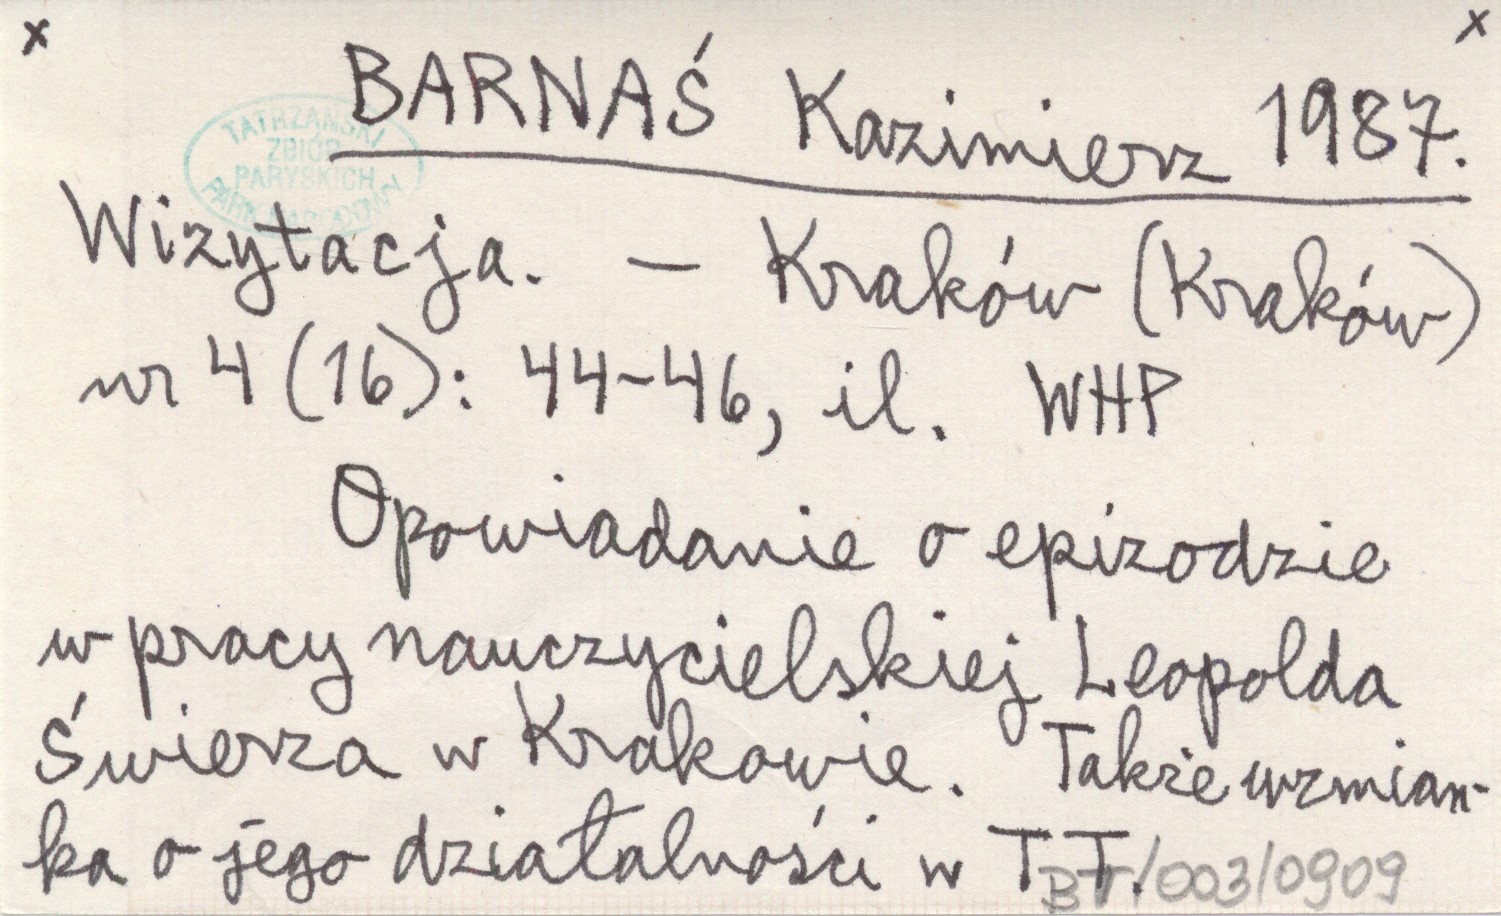 x x
BARNAŚ Kazimierz 1987.
TATRZAŃSKI
ZBIÓR
PARYSKICH
PARK NARODOWY
Wizytacja. – Kraków (Kraków)
nr 4 (16): 44-46, il. WHP
Opowiadanie o epizodzie
w pracy nauczycielskiej Leopolda
Świerza w Krakowie. Także wzmian-
ka o jego działalności w T.T.
BT/003/0909